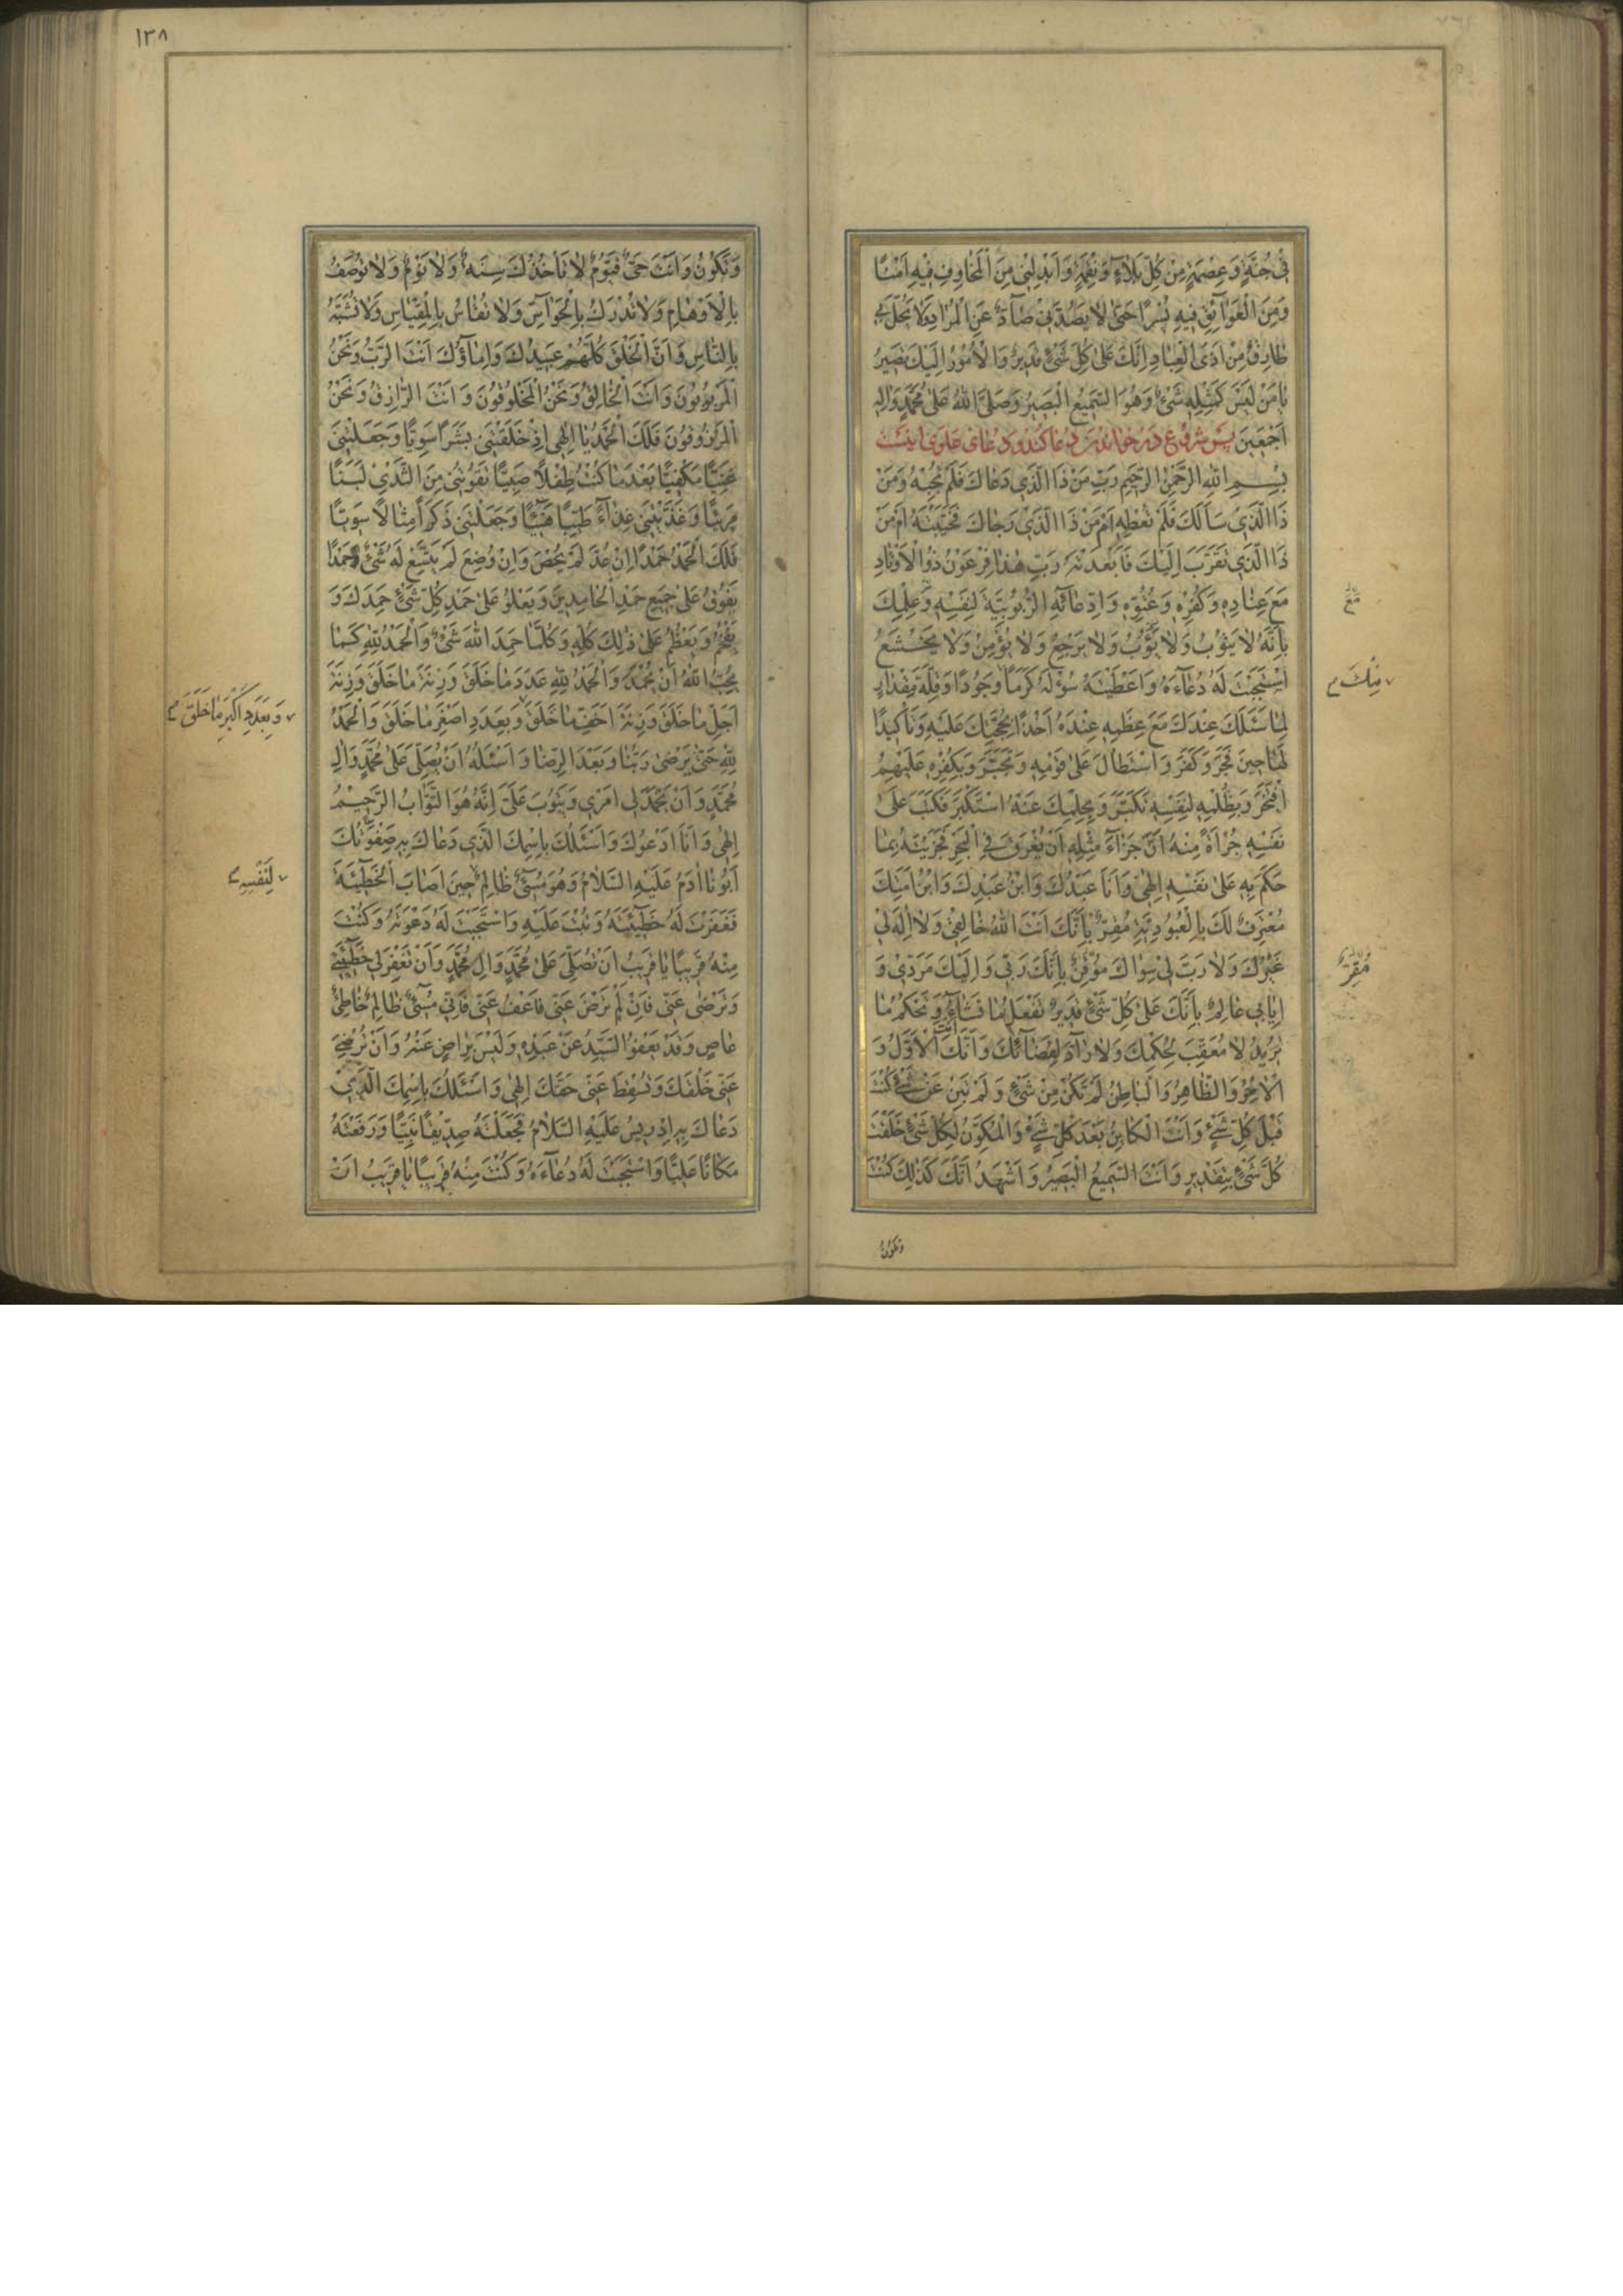 فِي جُنَّةٍ وَعِصْمَةٍ مِنْ كُلِّ بَلَاءٍ وَنِقْمَةٍ وَاَبْدِلْنِي مِنَ الْمَخَاوِفِ فِيهِ اَمْنًا
وَمِنَ الْعَوَائِقِ فِيهِ يُسْرًا حَتّٰى لَا يَصُدَّنِي صَادٌّ عَنِ الْمُرَادِ وَلَا يَحُلَّ بِي
طَارِقٌ مِنْ اَذَى الْعِبَادِ اِنَّكَ عَلٰى كُلِّ شَيْءٍ قَدِيرٌ وَالْاُمُورُ اِلَيْكَ تَصِيرُ
يَا مَنْ لَيْسَ كَمِثْلِهِ شَيْءٌ وَهُوَ السَّمِيعُ الْبَصِيرُ وَصَلَّى اللّٰهُ عَلٰى مُحَمَّدٍ وَاٰلِهِ
اَجْمَعِينَ پس شروع در خواندن دعا کند و دعای علوی اینست
بِسْمِ اللّٰهِ الرَّحْمٰنِ الرَّحِيمِ رَبِّ مَنْ ذَا الَّذِي دَعَاكَ فَلَمْ تُجِبْهُ وَمَنْ
ذَا الَّذِي سَاَلَكَ فَلَمْ تُعْطِهِ اَمْ مَنْ ذَا الَّذِي رَجَاكَ فَخَيَّبْتَهُ اَمْ مَنْ
ذَا الَّذِي تَقَرَّبَ اِلَيْكَ فَاَبْعَدْتَهُ رَبِّ هٰذَا فِرْعَوْنُ ذُو الْاَوْتَادِ
مَعَ عِنَادِهِ وَكُفْرِهِ وَعُتُوِّهِ وَادِّعَائِهِ الرُّبُوبِيَّةَ لِنَفْسِهِ وَعِلْمِكَ
بِاَنَّهُ لَا يَتُوبُ وَلَا يَؤُوبُ وَلَا يَرْجِعُ وَلَا يُؤْمِنُ وَلَا يَخْشَعُ
اسْتَجَبْتَ لَهُ دُعَاءَهُ وَاَعْطَيْتَهُ سُؤْلَهُ كَرَمًا وَجُودًا وَقِلَّةَ مِقْدَارٍ
لِمَا سَئَلَكَ عِنْدَكَ مَعَ عِظَمِهِ عِنْدَهُ اَخْذًا بِحُجَّتِكَ عَلَيْهِ وَتَاْكِيدًا
لَهَا حِينَ فَجَرَ وَكَفَرَ وَاسْتَطَالَ عَلٰى قَوْمِهِ وَتَجَبَّرَ وَبِكُفْرِهِ عَلَيْهِمُ
افْتَخَرَ وَبِظُلْمِهِ لِنَفْسِهِ تَكَبَّرَ وَبِحِلْمِكَ عَنْهُ اسْتَكْبَرَ فَكَتَبَ عَلٰى
نَفْسِهِ جُرْاَةً مِنْهُ اَنَّ جَزَاءَ مِثْلِهِ اَنْ يُغْرَقَ فِي الْبَحْرِ فَجَزَيْتَهُ بِمَا
حَكَمَ بِهِ عَلٰى نَفْسِهِ اِلٰهِي وَاَنَا عَبْدُكَ وَابْنُ عَبْدِكَ وَابْنُ اَمَتِكَ
مُعْتَرِفٌ لَكَ بِالْعُبُودِيَّةِ مُقِرٌّ بِاَنَّكَ اَنْتَ اللّٰهُ خَالِقِي وَلَا اِلٰهَ لِي
غَيْرُكَ وَلَا رَبَّ لِي سِوَاكَ مُوقِنٌ بِاَنَّكَ رَبِّي وَاِلَيْكَ مَرَدِّي وَ
اِيَابِي عَالِمٌ بِاَنَّكَ عَلٰى كُلِّ شَيْءٍ قَدِيرٌ تَفْعَلُ مَا تَشَاءُ وَتَحْكُمُ مَا
تُرِيدُ لَا مُعَقِّبَ لِحُكْمِكَ وَلَا رَادَّ لِقَضَائِكَ وَاَنَّكَ الْاَوَّلُ وَ
الْاٰخِرُ وَالظَّاهِرُ وَالْبَاطِنُ لَمْ تَكُنْ مِنْ شَيْءٍ وَلَمْ تَبِنْ عَنْ شَيْءٍ كُنْتَ
قَبْلَ كُلِّ شَيْءٍ وَاَنْتَ الْكَائِنُ بَعْدَ كُلِّ شَيْءٍ وَالْمُكَوِّنُ لِكُلِّ شَيْءٍ خَلَقْتَ
كُلَّ شَيْءٍ بِتَقْدِيرٍ وَاَنْتَ السَّمِيعُ الْبَصِيرُ وَاَشْهَدُ اَنَّكَ كَذٰلِكَ كُنْتَ
وَتَكُونُ
مِنْكَ
مُقِرٌّ
١٣٨
وَتَكُونُ وَاَنْتَ حَيٌّ قَيُّومٌ لَا تَاْخُذُكَ سِنَةٌ وَلَا نَوْمٌ وَلَا تُوصَفُ
بِالْاَوْهَامِ وَلَا تُدْرَكُ بِالْحَوَاسِّ وَلَا تُقَاسُ بِالْمِقْيَاسِ وَلَا تُشَبَّهُ
بِالنَّاسِ وَاَنَّ الْخَلْقَ كُلَّهُمْ عَبِيدُكَ وَاِمَاؤُكَ اَنْتَ الرَّبُّ وَنَحْنُ
الْمَرْبُوبُونَ وَاَنْتَ الْخَالِقُ وَنَحْنُ الْمَخْلُوقُونَ وَاَنْتَ الرَّازِقُ وَنَحْنُ
الْمَرْزُوقُونَ فَلَكَ الْحَمْدُ يَا اِلٰهِي اِذْ خَلَقْتَنِي بَشَرًا سَوِيًّا وَجَعَلْتَنِي
غَنِيًّا مَكْفِيًّا بَعْدَ مَا كُنْتُ طِفْلًا صَبِيًّا تَقُوتُنِي مِنَ الثَّدْيِ لَبَنًا
مَرِيئًا وَغَذَّيْتَنِي غِذَاءً طَيِّبًا هَنِيئًا وَجَعَلْتَنِي ذَكَرًا مِثَالًا سَوِيًّا
فَلَكَ الْحَمْدُ حَمْدًا اِنْ عُدَّ لَمْ يُحْصَ وَاِنْ وُضِعَ لَمْ يَتَّسِعْ لَهُ شَيْءٌ حَمْدًا
يَفُوقُ عَلٰى جَمِيعِ حَمْدِ الْحَامِدِينَ وَيَعْلُو عَلٰى حَمْدِ كُلِّ شَيْءٍ حَمِدَكَ وَ
يَفْخُمُ وَيَعْظُمُ عَلٰى ذٰلِكَ كُلِّهِ وَكُلَّمَا حَمِدَ اللّٰهَ شَيْءٌ وَالْحَمْدُ لِلّٰهِ كَمَا
يُحِبُّ اللّٰهُ اَنْ يُحْمَدَ وَالْحَمْدُ لِلّٰهِ عَدَدَ مَا خَلَقَ وَزِنَةَ مَا خَلَقَ وَزِنَةَ
اَجَلِّ مَا خَلَقَ وَزِنَةَ اَخَفِّ مَا خَلَقَ وَبِعَدَدِ اَصْغَرِ مَا خَلَقَ وَالْحَمْدُ
لِلّٰهِ حَتّٰى يَرْضٰى رَبُّنَا وَبَعْدَ الرِّضَا وَاَسْئَلُهُ اَنْ يُصَلِّيَ عَلٰى مُحَمَّدٍ وَاٰلِ
مُحَمَّدٍ وَاَنْ يَحْمَدَ لِي اَمْرِي وَيَتُوبَ عَلَيَّ اِنَّهُ هُوَ التَّوَّابُ الرَّحِيمُ
اِلٰهِي وَاَنَا اَدْعُوكَ وَاَسْئَلُكَ بِاسْمِكَ الَّذِي دَعَاكَ بِهِ صَفْوَتُكَ
اَبُونَا اٰدَمُ عَلَيْهِ السَّلَامُ وَهُوَ مُسِيءٌ ظَالِمٌ حِينَ اَصَابَ الْخَطِيئَةَ
فَغَفَرْتَ لَهُ خَطِيئَتَهُ وَتُبْتَ عَلَيْهِ وَاسْتَجَبْتَ لَهُ دَعْوَتَهُ وَكُنْتَ
مِنْهُ قَرِيبًا يَا قَرِيبُ اَنْ تُصَلِّيَ عَلٰى مُحَمَّدٍ وَاٰلِ مُحَمَّدٍ وَاَنْ تَغْفِرَ لِي خَطِيئَتِي
وَتَرْضٰى عَنِّي فَاِنْ لَمْ تَرْضَ عَنِّي فَاعْفُ عَنِّي فَاِنِّي مُسِيءٌ ظَالِمٌ خَاطِئٌ
عَاصٍ وَقَدْ يَعْفُو السَّيِّدُ عَنْ عَبْدِهِ وَلَيْسَ بِرَاضٍ عَنْهُ وَاَنْ تُرْضِيَ
عَنِّي خَلْقَكَ وَتُسْقِطَ عَنِّي حَقَّكَ اِلٰهِي وَاَسْئَلُكَ بِاسْمِكَ الَّذِي
دَعَاكَ بِهِ اِدْرِيسُ عَلَيْهِ السَّلَامُ فَجَعَلْتَهُ صِدِّيقًا نَبِيًّا وَرَفَعْتَهُ
مَكَانًا عَلِيًّا وَاسْتَجَبْتَ لَهُ دُعَاءَهُ وَكُنْتَ مِنْهُ قَرِيبًا يَا قَرِيبُ اَنْ
وَبِعَدَدِ اَكْبَرِ مَا خَلَقَ
لِنَفْسِهِ